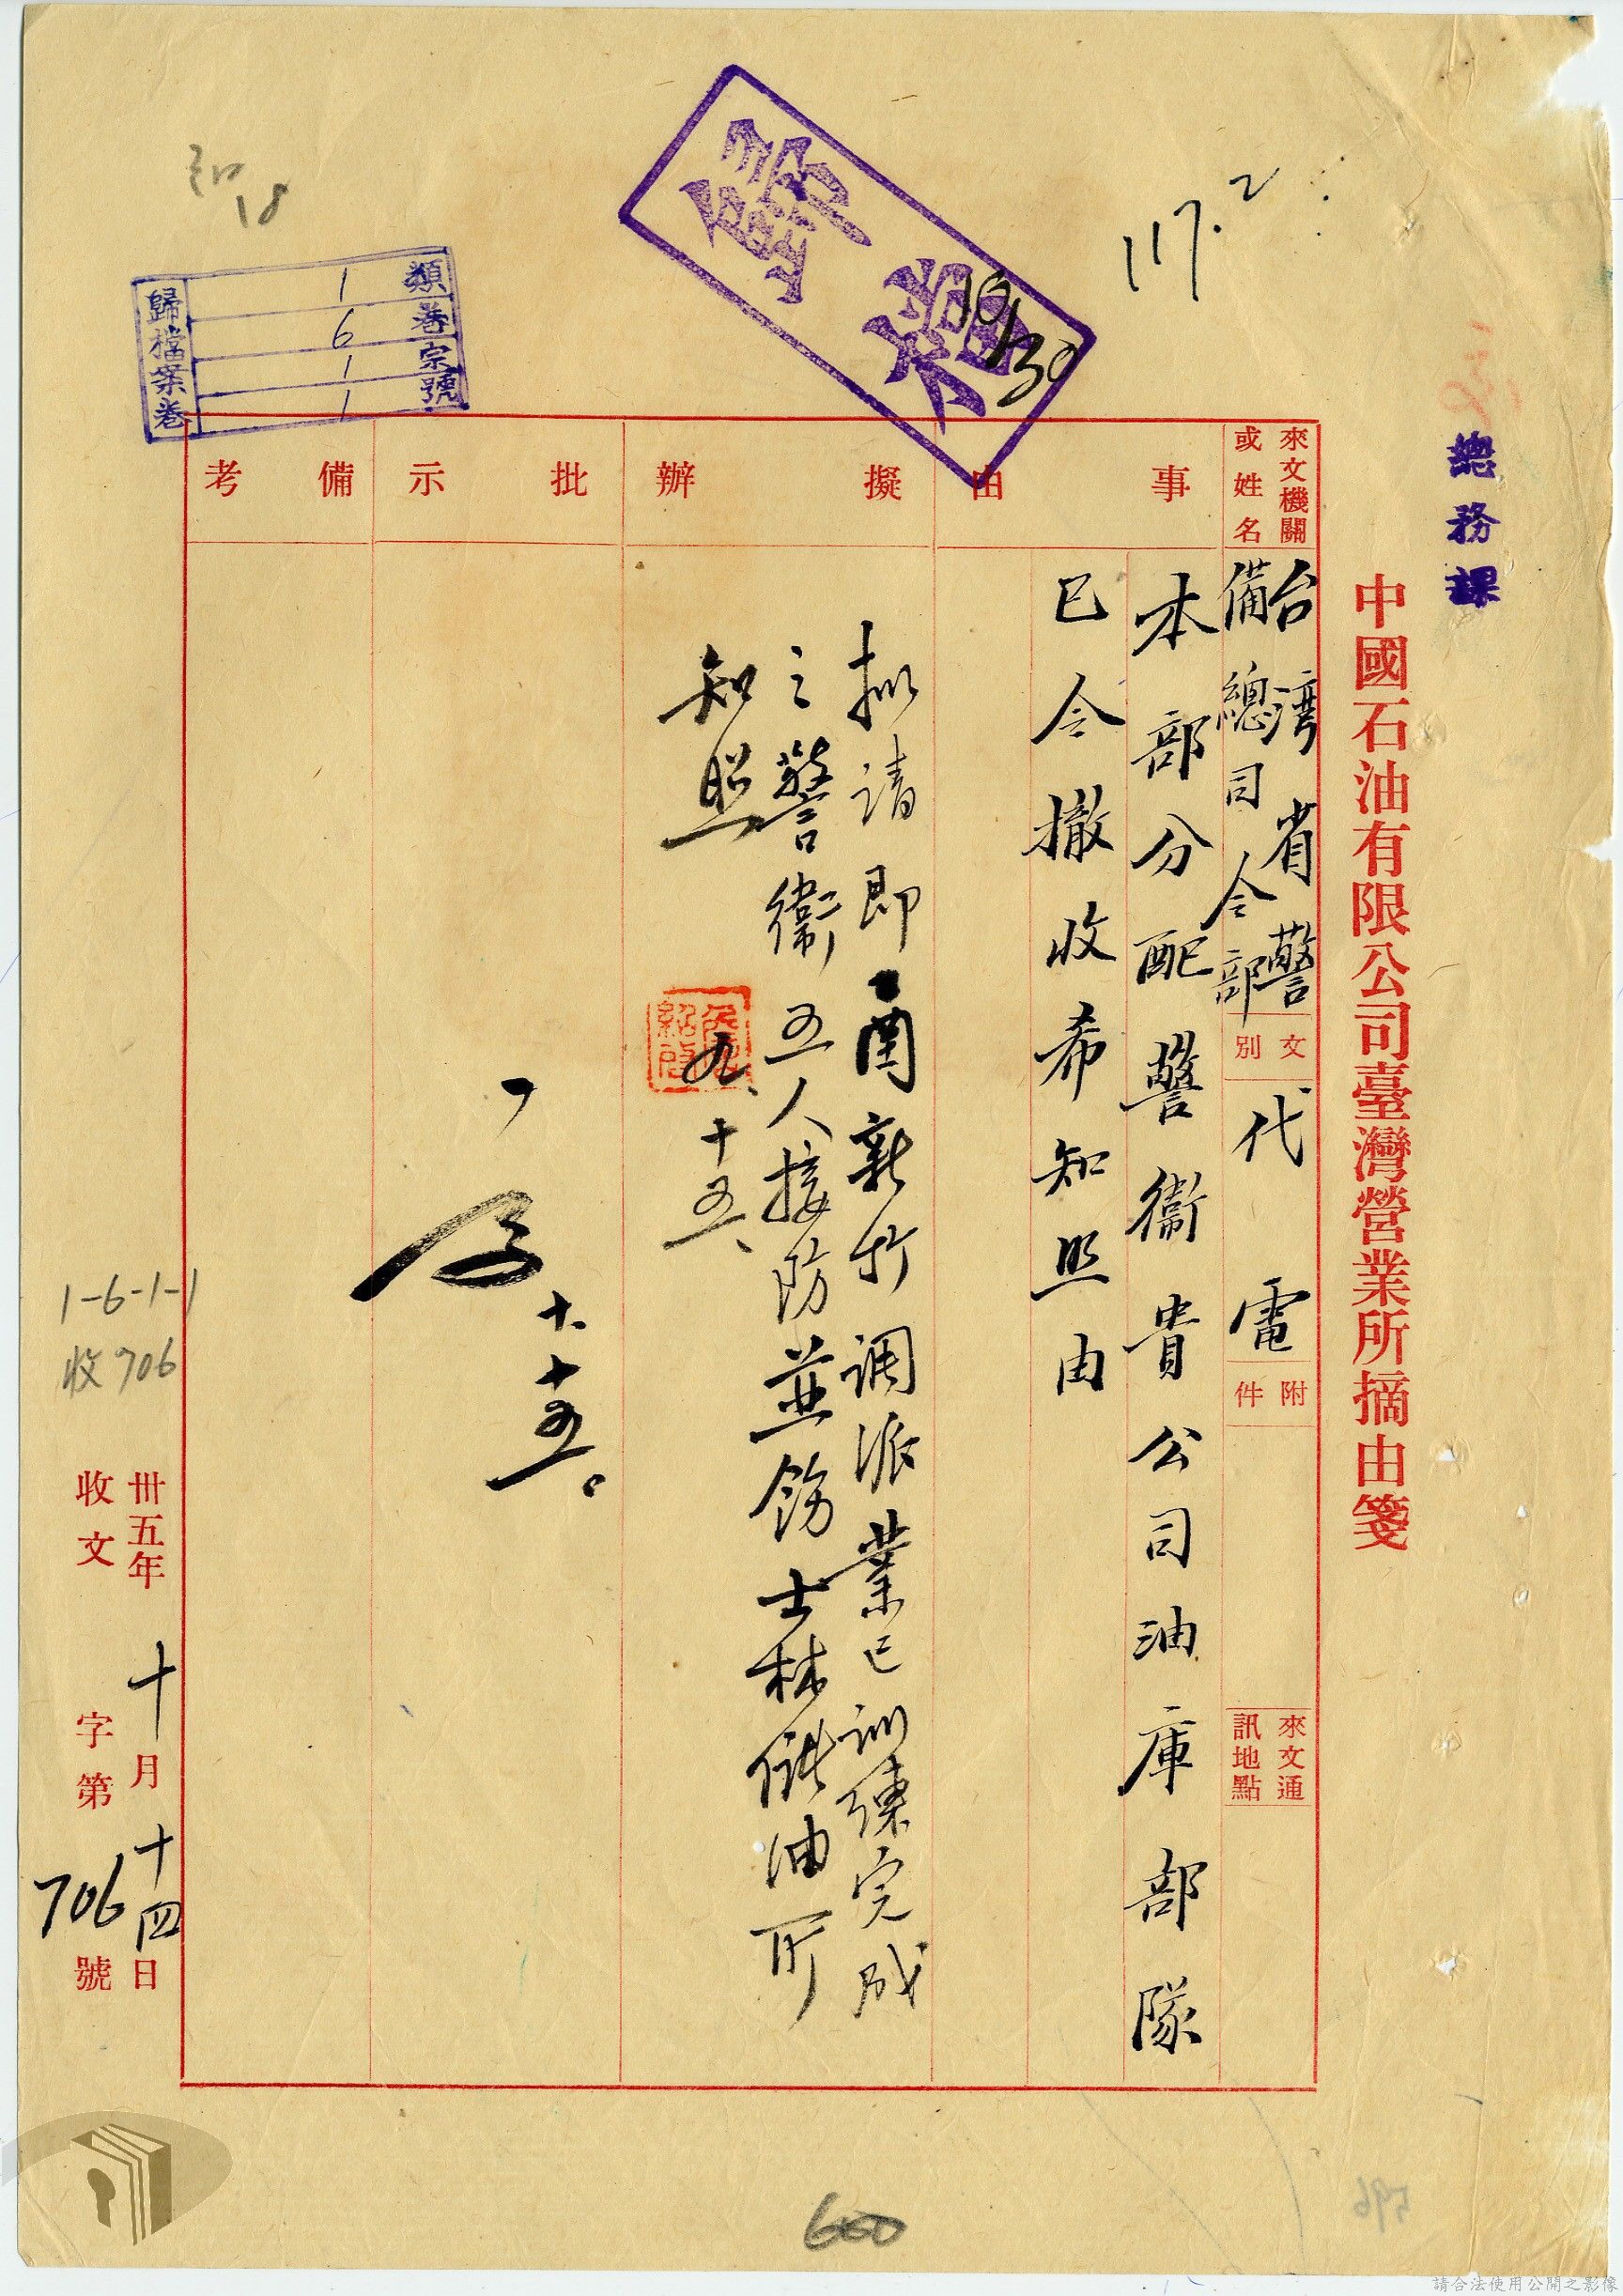 總務課
中國石油有限公司臺灣營業所摘由箋
來文機關
或姓名
台灣省警
備總司令部
文別
代電
附件
來文通
訊地點
事由
本部分配警衛貴公司油庫部隊
已令撤收希知照由
擬辦
擬請即由新竹調派業已訓練完成
之警衛五人接防並飭士林儲油所
知照
九、十五、
批示
十、十五。
備考
卅五年十月十四日
收文字第706號
歸檔
10/30
117.2
18
類 1
卷 6
宗 1
號 1
歸檔案卷
1-6-1-1
收706
600
596
請合法使用公開之影像